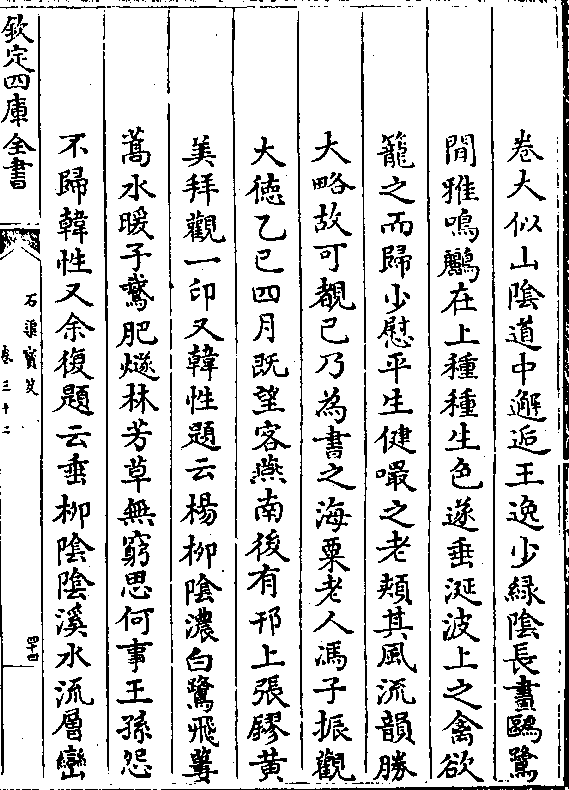 卷大似山陰道中邂逅王逸少緑陰長晝鷗鷺
間雅鳴鸝在上種種生色遂垂涎波上之禽欲
籠之而歸少慰平生健噉之老頰其風流韻勝
大略故可覩已乃為書之海粟老人馮子振觀
大徳乙巳四月既望客燕南後有邗上張鏐黄
美拜觀一印又韓性題云楊柳陰濃白鷺飛蔞
蒿水暖子鵞肥燧林芳草無窮思何事王孫怨
不歸韓性又余復題云垂柳陰陰溪水流層巒
欽定四庫全書
石渠寳笈
卷三十二
四十四